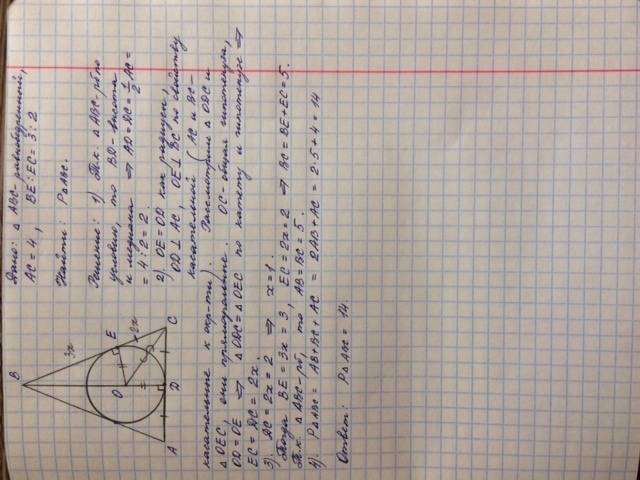 Дано: △ ABC - равнобедренный,
AC = 4, BE : EC = 3 : 2
Найти: P△ABC.
B
3x
E
2x
O
A
D
C
Решение: 1) Т.к. △ ABC - р/б по
условию, то BD - высота
и медиана ⇒ AD = DC = 1/2 AC =
= 4 : 2 = 2.
2) OE = OD как радиусы,
OD ⊥ AC, OE ⊥ BC по свойству
касательной (AC и BC -
касательные к окр-ти). Рассмотрим △ ODC и
△ OEC, они прямоугольные. OC - общая гипотенуза,
OD = OE ⇒ △ ODC = △ OEC по катету и гипотенузе ⇒
EC = DC = 2x.
3). DC = 2x = 2 ⇒ x = 1.
Тогда BE = 3x = 3, EC = 2x = 2 ⇒ BC = BE + EC = 5.
Т.к. △ ABC - р/б, то AB = BC = 5.
4). P△ABC = AB + BC + AC = 2AB + AC = 2·5 + 4 = 14
Ответ: P△ABC = 14.